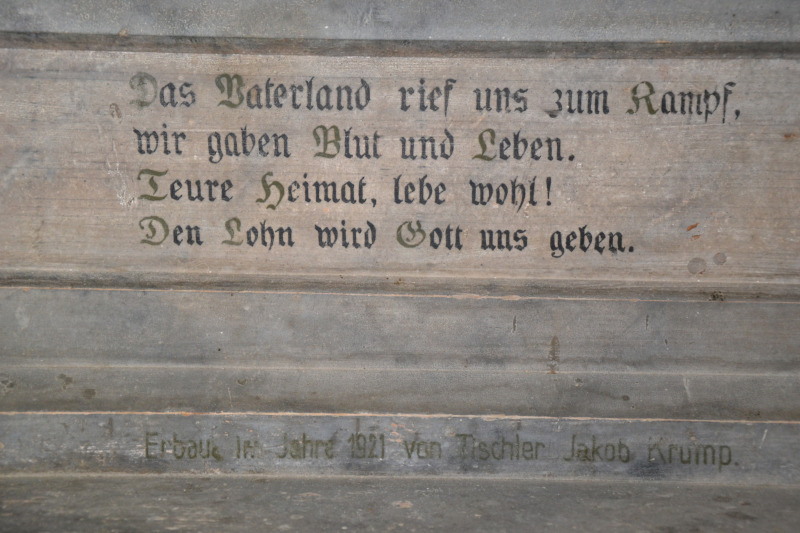 Das Vaterland rief uns zum Kampf,
wir gaben Blut und Leben.
Teure Heimat, lebe wohl!
Den Lohn wird Gott uns geben.
Erbaut im Jahre 1921 von Tischler Jakob Krump.